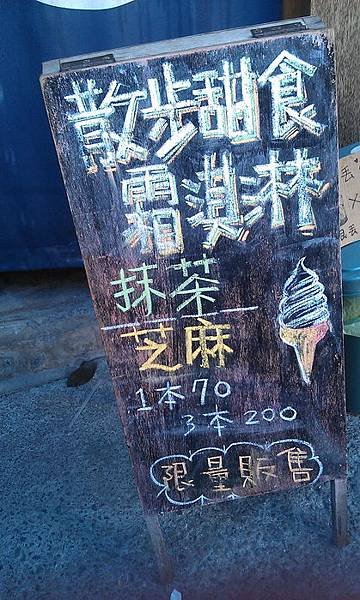 散步甜食
霜淇淋
抹茶
芝麻
1本70
3本200
限量販售